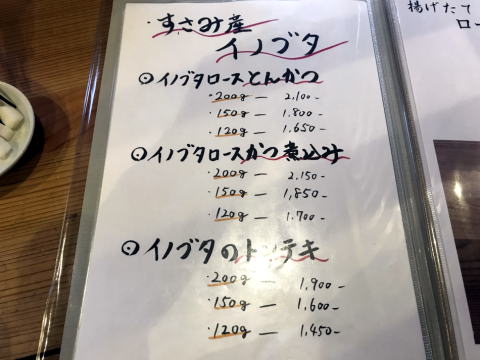 ・すさみ産
イノブタ
⊙イノブタロースとんかつ
・200g ― 2,100-
・150g ― 1,800-
・120g ― 1,650-
⊙イノブタロースかつ煮込み
・200g ― 2,150-
・150g ― 1,850-
・120g ― 1,700-
⊙イノブタのトンテキ
・200g ― 1,900-
・150g ― 1,600-
・120g ― 1,450-
揚げたて
ロー